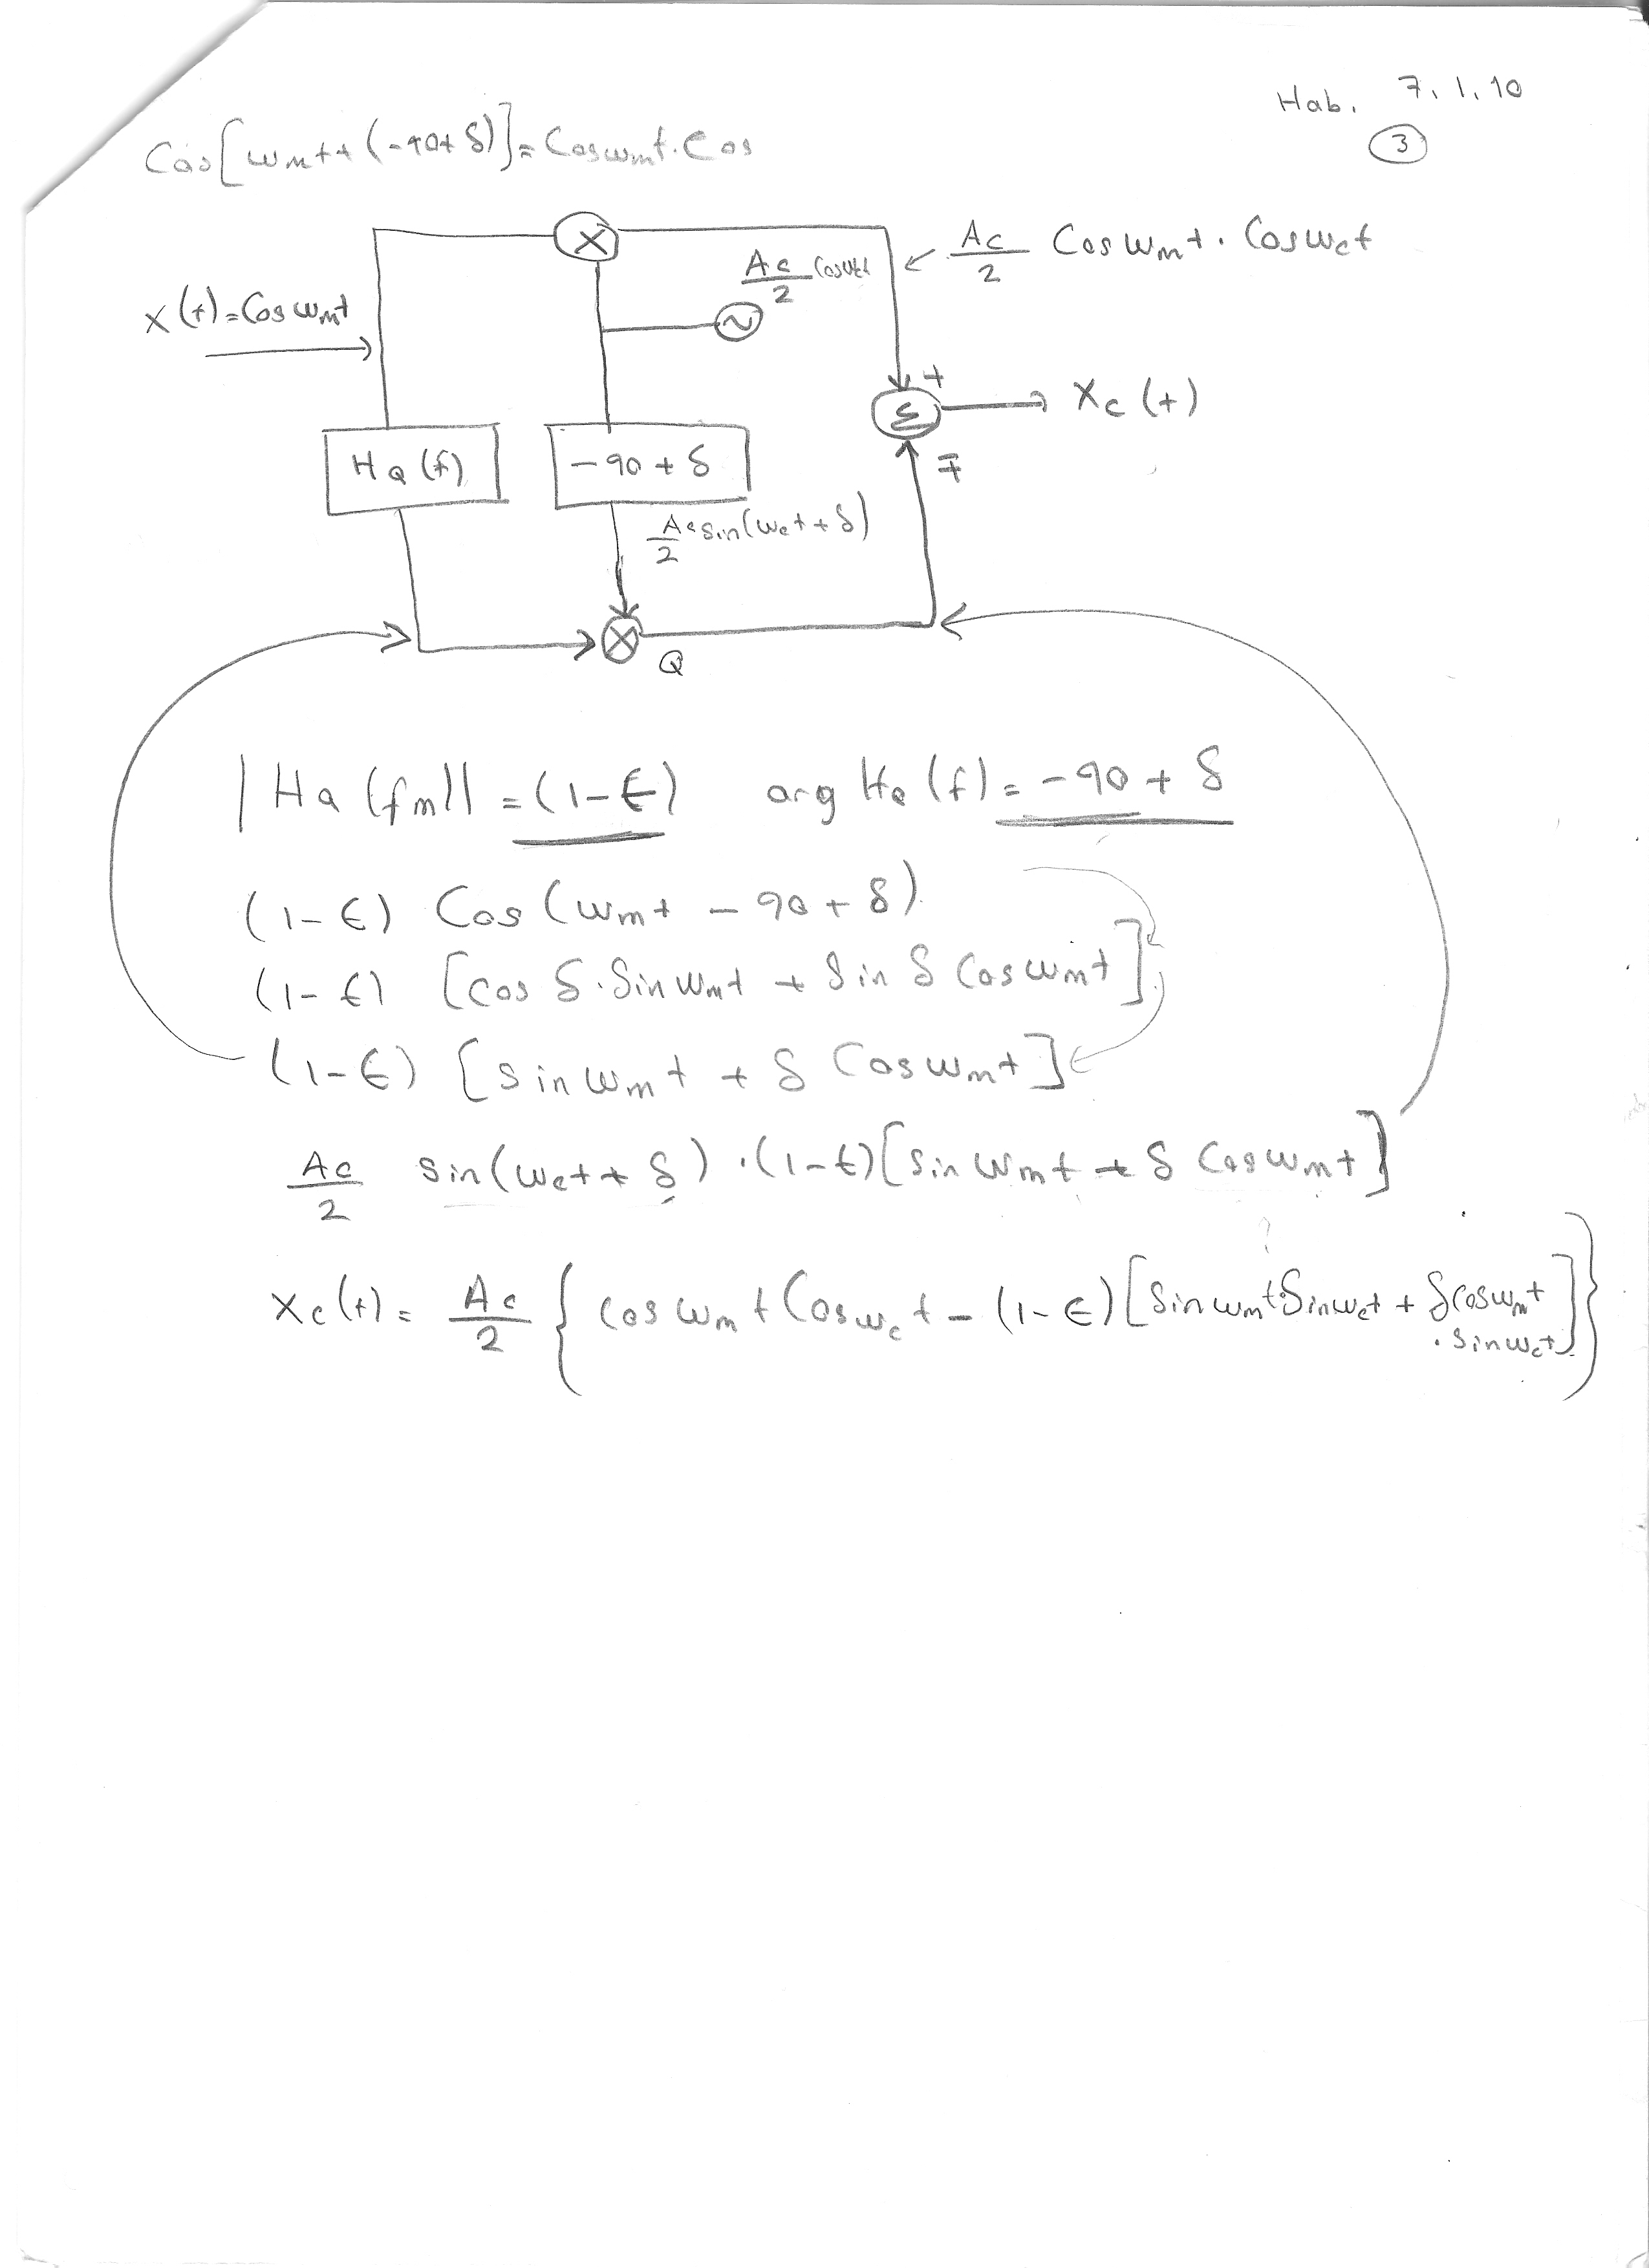 Hab. 7.1.10
3
Cos[ωmt+(-90+δ)]=Cosωmt.Cos
X
Ac/2 Cosωct
Ac/2 Cosωmt.Cosωct
x(t)=Cosωmt
~
+
Σ
Xc(t)
HQ(f)
-90+δ
∓
Ac/2 sin(ωct+δ)
X
Q
|HQ(fm)|=(1-ϵ) arg HQ(f)=-90+δ
(1-ϵ) Cos(ωmt-90+δ)
(1-ϵ) [cosδ.Sinωmt+Sinδ Cosωmt]
(1-ϵ) [sinωmt+δ Cosωmt]
Ac/2 sin(ωct+δ).(1-ϵ)[sinωmt+δ Cosωmt]
xc(t)=Ac/2 {cosωmt Cosωct-(1-ϵ)[Sinωmt.Sinωct+δcosωmt
.sinωct]}